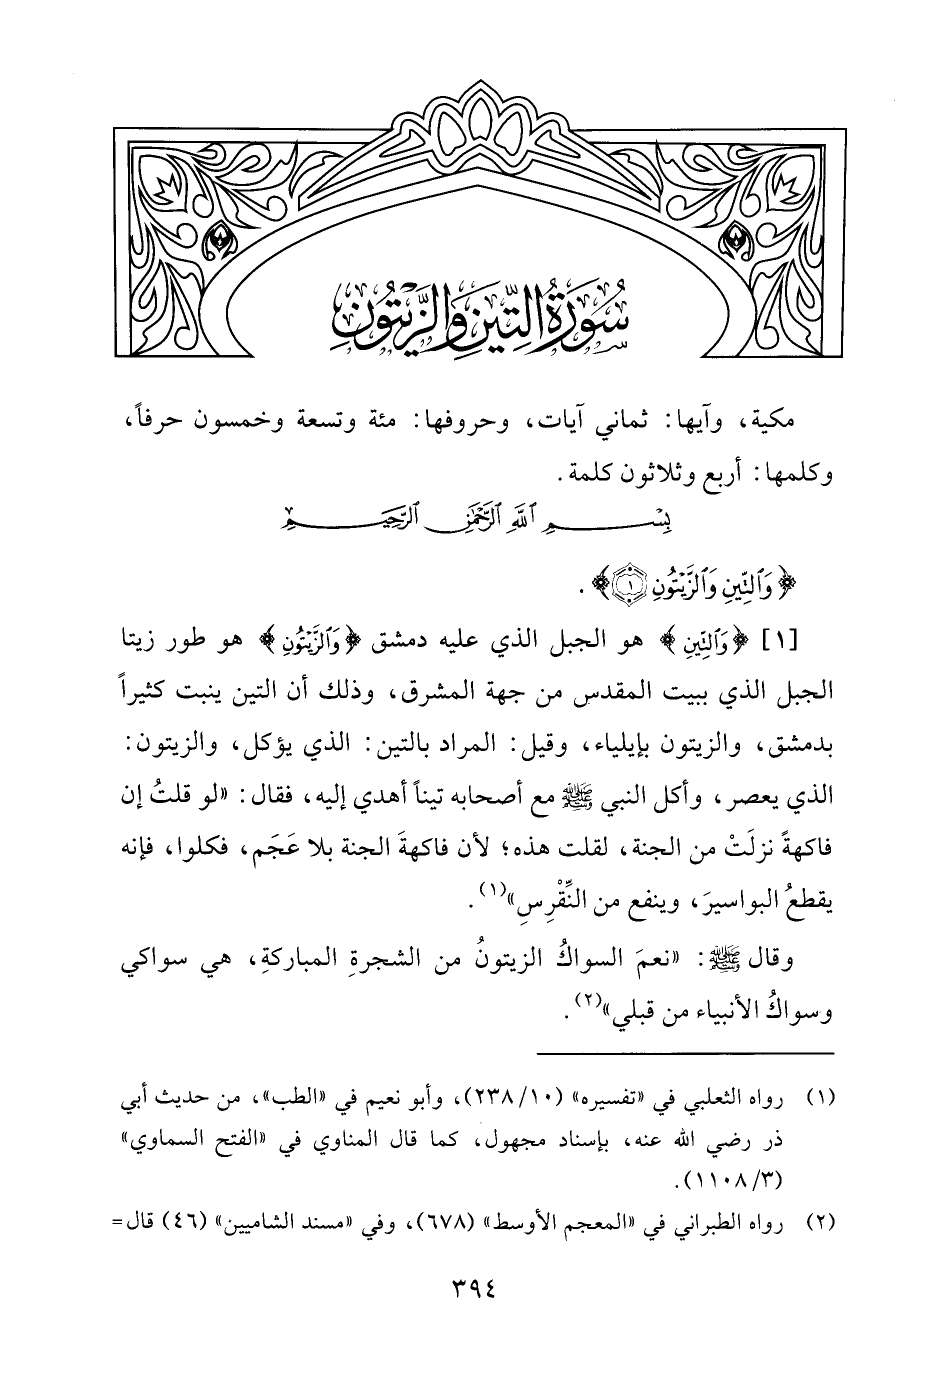 سُورَةُ التِّينِ وَالزَّيْتُونِ
مكية، وآيها: ثماني آيات، وحروفها: مئة وتسعة وخمسون حرفاً،
وكلمها: أربع وثلاثون كلمة.
بِسْمِ ٱللَّهِ ٱلرَّحْمَٰنِ ٱلرَّحِيمِ
﴿وَٱلتِّينِ وَٱلزَّيْتُونِ ١﴾.
[١] ﴿وَٱلتِّينِ﴾ هو الجبل الذي عليه دمشق ﴿وَٱلزَّيْتُونِ﴾ هو طور زيتا
الجبل الذي ببيت المقدس من جهة المشرق، وذلك أن التين ينبت كثيراً
بدمشق، والزيتون بإيلياء، وقيل: المراد بالتين: الذي يؤكل، والزيتون:
الذي يعصر، وأكل النبي ﷺ مع أصحابه تيناً أهدي إليه، فقال: «لو قلتُ إن
فاكهةً نزلَتْ من الجنة، لقلت هذه؛ لأن فاكهةَ الجنة بلا عَجَم، فكلوا، فإنه
يقطعُ البواسيرَ، وينفع من النِّقْرِسِ»(١).
وقال ﷺ: «نعمَ السواكُ الزيتونُ من الشجرةِ المباركةِ، هي سواكي
وسواكُ الأنبياء من قبلي»(٢).
(١) رواه الثعلبي في «تفسيره» (١٠/ ٢٣٨)، وأبو نعيم في «الطب»، من حديث أبي
ذر رضي الله عنه، بإسناد مجهول، كما قال المناوي في «الفتح السماوي»
(٣/ ١١٠٨).
(٢) رواه الطبراني في «المعجم الأوسط» (٦٧٨)، وفي «مسند الشاميين» (٤٦) قال=
٣٩٤